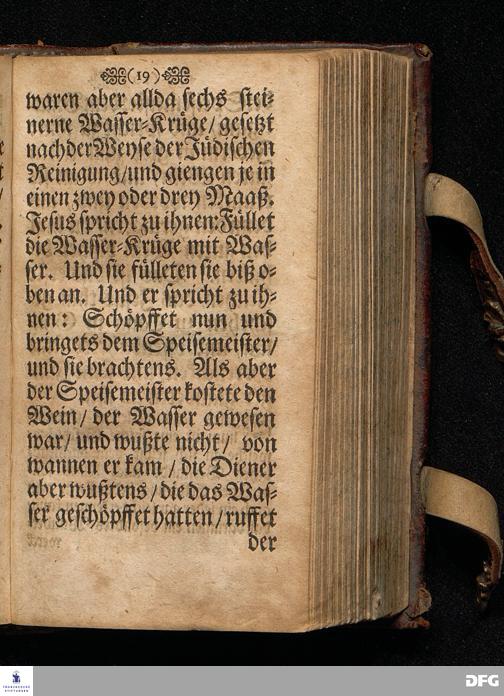 (19)
waren aber allda sechs stei-
nerne Wasser-Krüge/ gesetzt
nach der Weyse der Jüdischen
Reinigung/und giengen je in
einen zwey oder drey Maaß.
Jesus spricht zu ihnen: Füllet
die Wasser-Krüge mit Was-
ser. Und sie fülleten sie biß o-
ben an. Und er spricht zu ih-
nen: Schöpffet nun und
bringets dem Speisemeister/
und sie brachtens. Als aber
der Speisemeister kostete den
Wein/ der Wasser gewesen
war/ und wußte nicht/ von
wannen er kam / die Diener
aber wußtens / die das Was-
ser geschöpffet hatten / ruffet
der
FRANCKESCHE
STIFTUNGEN
DFG